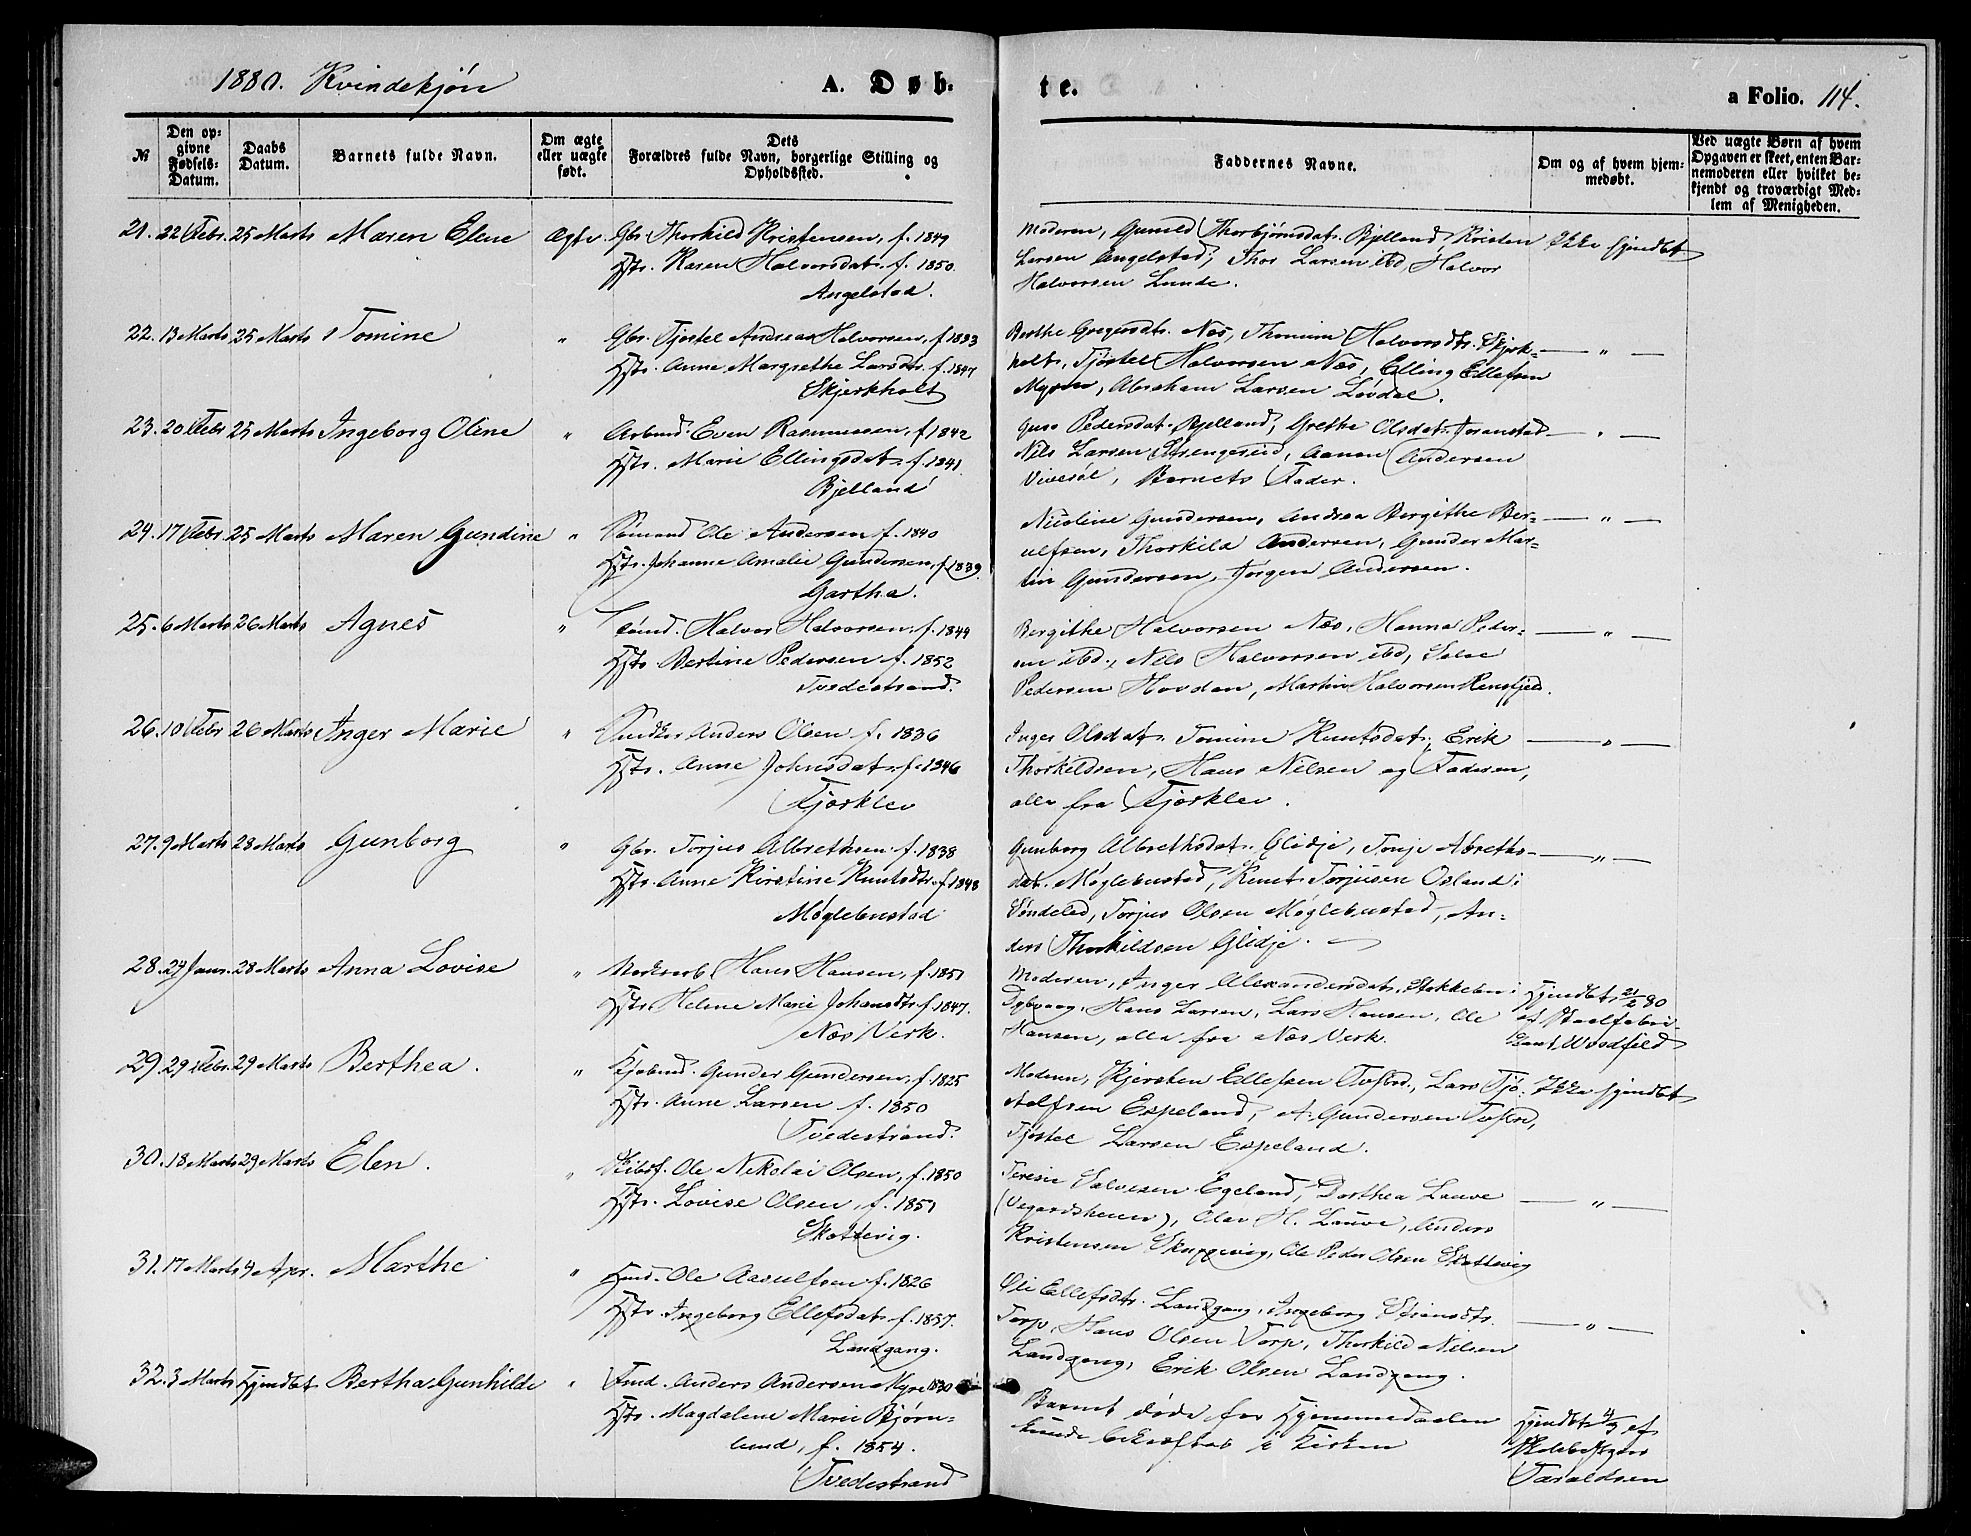 1880. Kvindekjøn
A. Døb-
te.
a Folio. 114.
№
Den op-
givne
Fødsels-
Datum.
Daabs
Datum.
Barnets fulde Navn.
Om ægte
eller uægte
født.
Dets
Forældres fulde Navn, borgerlige Stilling og
Opholdssted.
Faddernes Navne.
Om og af hvem hjem-
medøbt.
Ved uægte Børn af hvem
Opgaven er skeet, enten Bar-
nemoderen eller hvilket be-
kjendt og troværdigt Med-
lem af Menigheden.
21. 22 Febr. 25 Marts Maren Elene Ægte. Gbr. Thorkild Kristensen, f. 1849
Hstr. Karen Halvorsdat. f. 1850.
Angelstad.
Moderen, Gunild Thorbjørnsdat. Bjelland, Kristen
Larsen Angelstad, Thor Larsen ibd, Halvor
Halvorsen Lunde.
Ikke hjemdøbt
22. 13 Marts 25 Marts Tomine " Gbr. Tjøstel Andreas Halvorsen, f. 1833
Hstr. Anne Margrethe Larsdtr. f. 1847
Skjerkholt
Berthe Gregersdtr. Næs, Thomine Halvorsdtr. Skjerk-
holt, Tjøstel Halvorsen Næs, Elling Ellefsen
Myren, Abraham Larsen Løvdal.
— " —
23. 20 Febr 25 Marts Ingeborg Oline " Arbmd. Even Rasmussen, f. 1842
Hstr. Marie Ellingsdat. f. 1841.
Bjelland
Pedersdat. Bjelland, Grethe Olsdat.
Nils Larsen Strengereid, Aanon Andersen
Barnets Fader.
— " —
24. 17 Febr. 25 Marts Maren Gundine " Sømand Ole Andersen f. 1840
Hstr. Johanne Amalie Gundersen, f. 1839
Gartha.
Nicoline Gundersen, Andrea Bergithe Ber-
ulfsen, Thorkild Andersen, Gunder Mar-
tin Gundersen, Jørgen Andersen.
— " —
25. 6 Marts 26 Marts Agnes " Sømd. Halvor Halvorsen, f. 1849
Hstr. Bertine Pedersen f. 1852
Tvedestrand.
Bergithe Halvorsen Næs, Hanna Peder-
sen ibd., Nils Halvorsen ibd,
Pedersen Hovdan, Martin Halvorsen
— " —
26. 10 Febr 26 Marts Inger Marie " Anders Olsen f. 1836
Hstr. Anne Johnsdat. f. 1846
Fjærklev
Inger Olsdat. Tomine Knutsdat., Erik
Thorkildsen, Hans Nilsen og Faderen,
alle fra Fjærklev.
— " —
27. 9 Marts 28 Marts Gunborg " Gbr. Torjus Albrethsen f. 1838
Hstr. Anne Kirstine Knutsdtr. f. 1848
Møglebustad
Gunborg Albrethsdat. Glidje, Tonje Albreths-
dat. Møglebustad, Knut Torjusen Osland i
Søndeled, Torjus Olsen Møglebustad, An-
ders Thorkildsen Glidje.
— " —
28. 24 Janr. 28 Marts Anna Lovise " Verksarb. Hans Hansen, f. 1851
Hstr. Helene Marie Johansdtr. f. 1847.
Næs Verk.
Moderen, Inger Alexandersdat. Stokkeben i
Dybvaag, Hans Larsen, Lars Hansen, Ole
Hansen, alle fra Næs Verk.
Hjemdøbt 21/2 80
af Staalfabri-
kant Woodfield
29. 29 Febr. 29 Marts Berthea. " Kjøbmd. Gunder Gundersen, f. 1825
Hstr. Anne Larsen f. 1850
Tvedestrand.
Moderen, Kjersten Ellefsen Tvstrd., Lars Tjø-
Espeland, A. Gundersen Tvstrd,
Tjøstel Larsen Espeland.
Ikke hjemdøbt
30. 18 Marts 29 Marts Elen. " Skibsf. Ole Nikolai Olsen, f. 1850
Hstr. Lovise Olsen, f. 1851
Skottevig.
Terese Salvesen Egeland, Dorthea Lauve
(Vegardsheien), Olav H. Lauve, Anders
Kristensen Skuggevig, Ole Peder Olsen Skottevig
— " —
31. 17 Marts 4 Apr. Marthe " Hmd. Ole Aasulfsen f. 1826
Hstr. Ingeborg Ellefsdat. f. 1857.
Landgang.
Ellefsdtr. Landgang, Ingeborg
Torp, Hans Olsen Torp, Thorkild Nilsen
Landgang, Erik Olsen Landgang.
— " —
32. 3 Marts Hjemdøbt Bertha Gunhilde " Anders Andersen Myre 1830
Hstr. Magdalene Marie Bjørn-
lund, f. 1854.
Tvedestrand
Barnet døde før Hjemmedaaben
kunde bekræftes i Kirken
Hjemdøbt 4/3 af
Taraldsen